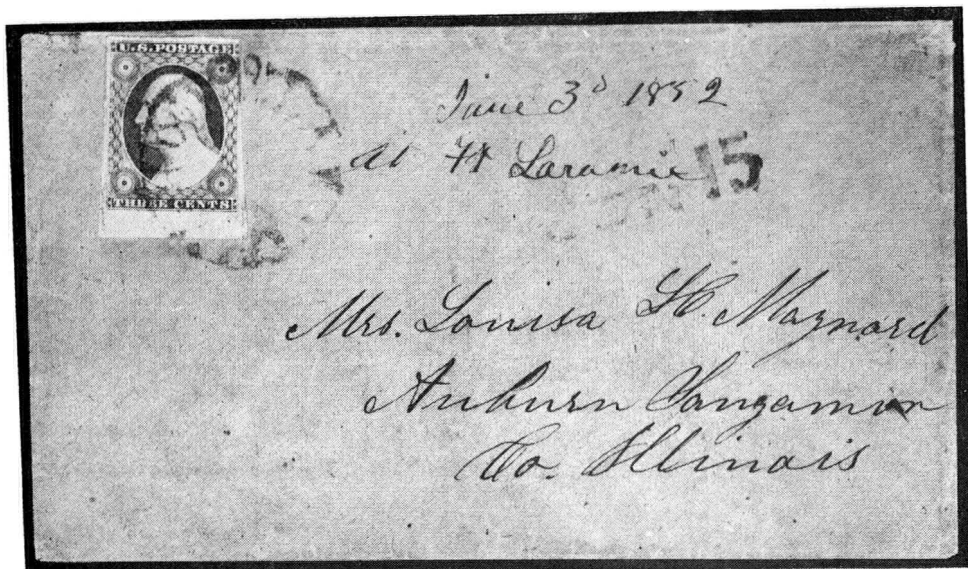 U.S. POSTAGE
THREE CENTS
June 3d 1852
at Ft Laramie
15
Mrs. Louisa H. Maynard
Auburn Sangamon
Co. Illinois